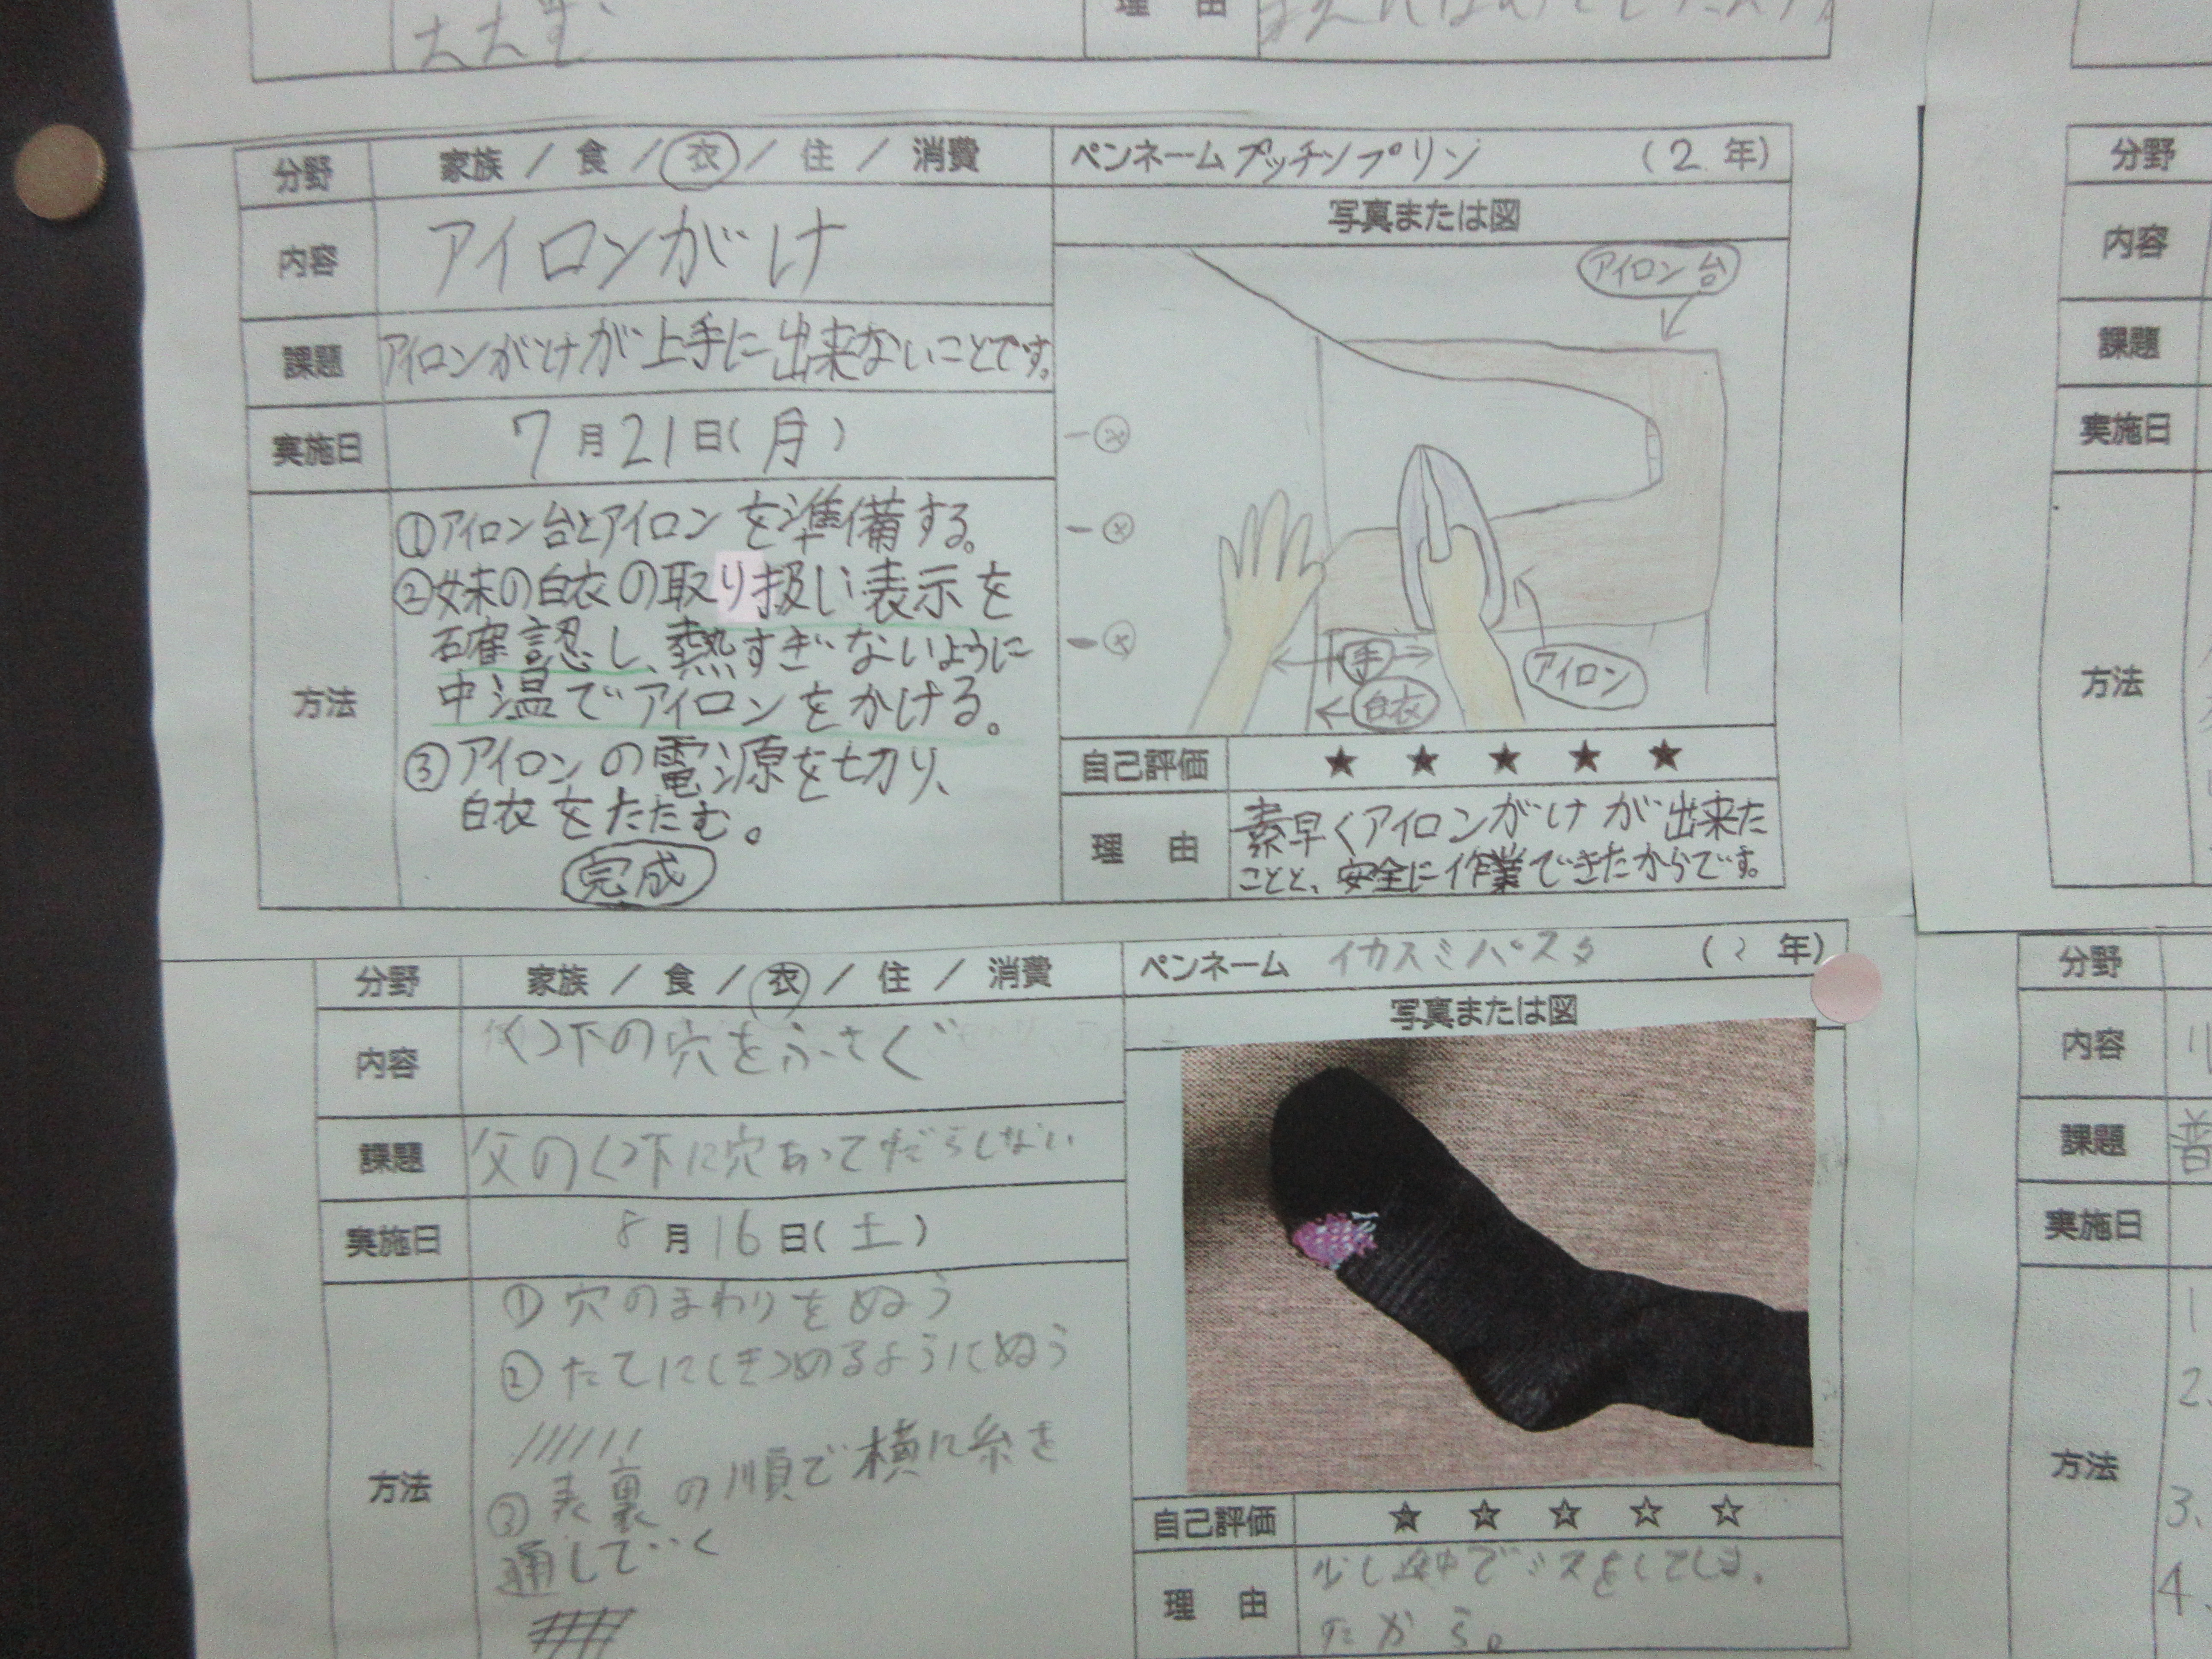 理 由
分野 家族 / 食 / 衣 / 住 / 消費
ペンネーム プッチンプリン (2 年)
内容 アイロンがけ
課題 アイロンがけが上手に出来ないことです。
実施日 7月21日(月)
方法
①アイロン台とアイロンを準備する。
②妹の白衣の取り扱い表示を
確認し、熱すぎないように
中温でアイロンをかける。
③アイロンの電源を切り、
白衣をたたむ。
完成
写真または図
アイロン台
手
白衣
アイロン
自己評価 ★ ★ ★ ★ ★
理 由 素早くアイロンがけが出来た
ことと、安全に作業できたからです。
分野 家族 / 食 / 衣 / 住 / 消費
ペンネーム イカスミパスタ (2 年)
内容 くつ下の穴をふさぐ
課題 父のくつ下に穴あってだらしない
実施日 8月16日(土)
方法
①穴のまわりをぬう
②たてにしきつめるようにぬう
③表裏の順で横に糸を
通していく
写真または図
自己評価 ★ ★ ★ ☆ ☆
理 由 少し途中でミスをしてしま
たから。
分野
内容
課題
実施日
方法
分野
内容
課題 普
実施日
方法
1
2.
3.
4.